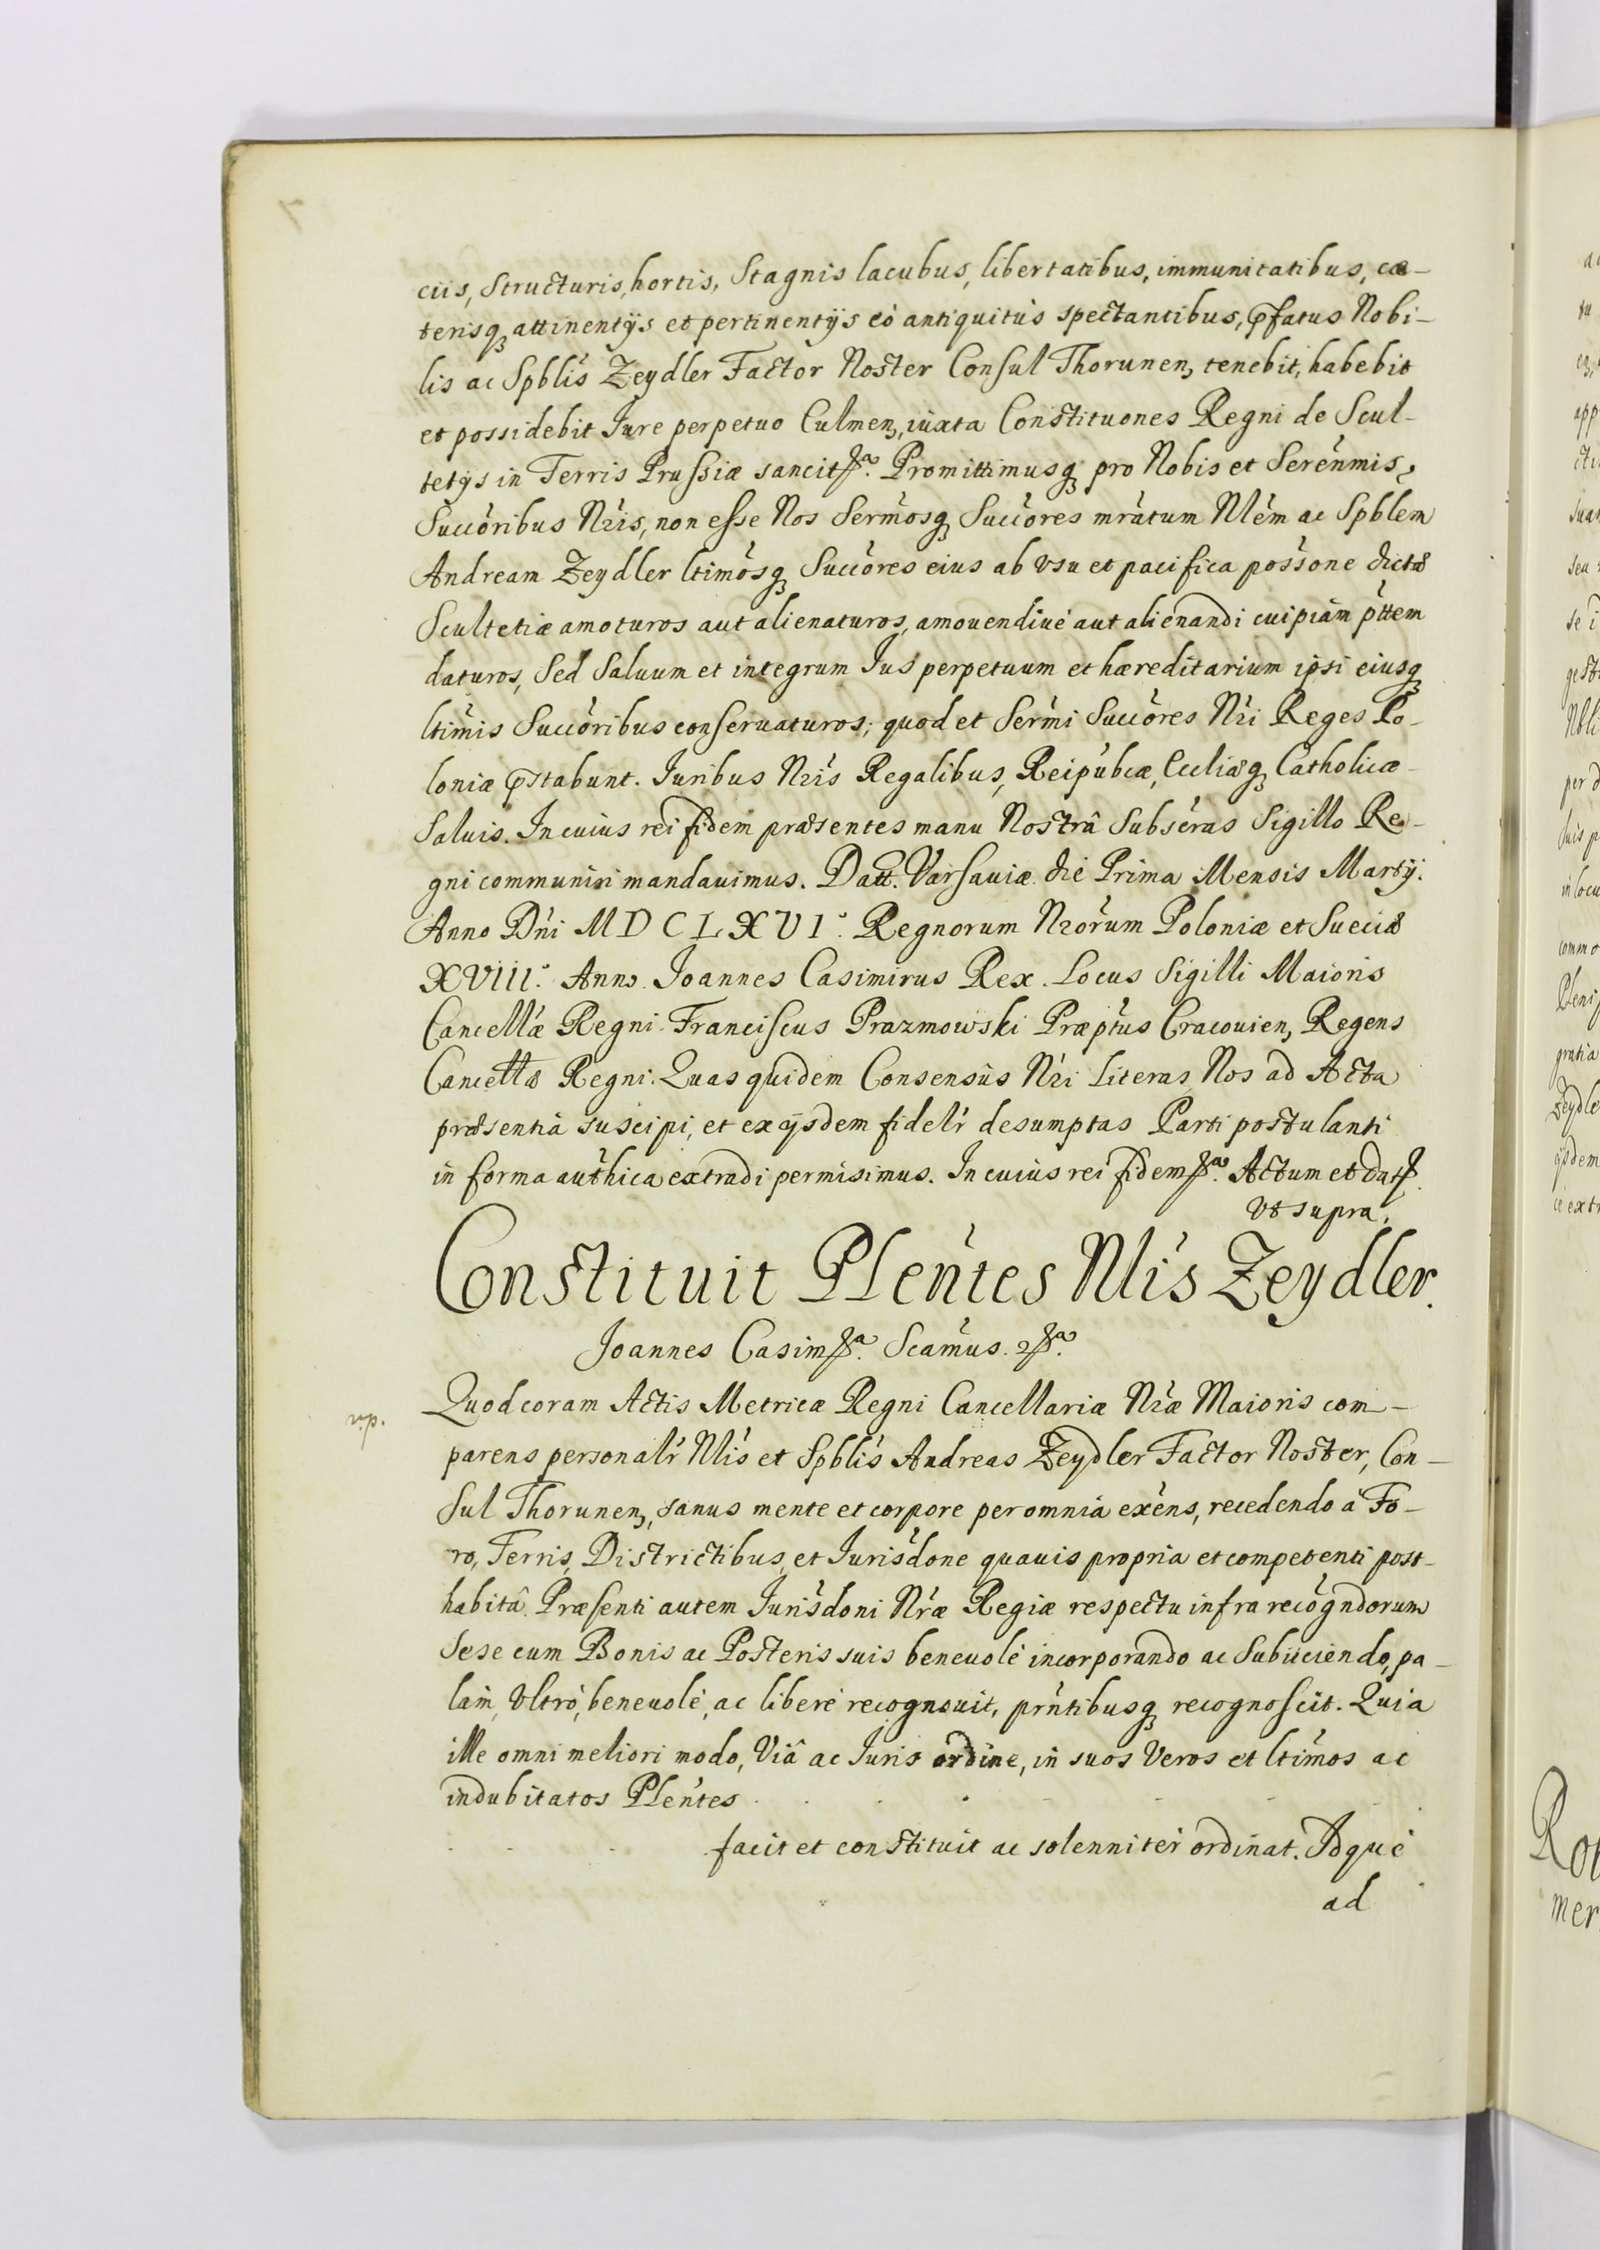 ciis, Structuris, hortis, Stagnis lacubus, libertatibus, immunitatibus, cæ-
terisq₃ attinentÿs et pertinentÿs eò antiquitùs spectantibus, p̄fatus Nobi-
lis ac Spblis Zeydler Factor Noster Consul Thorunen₃ tenebit, habebit
et possidebit Iure perpetuo Culmen₃, iuxta Constituones Regni de Scul-
tetÿs in Terris Prussiæ sancit. Promittimusq₃ pro Nobis et Serenmis,
Succoribus Nris, non esse Nos Sermosq₃ Succores mratum Nlem ac Spblem
Andream Zeydler ltimosq₃ Succores eius ab vsu et pacifica possone dictæ
Scultetiæ amoturos aut alienaturos, amouendiuè aut alienandi cuipiam pttem
daturos, Sed Saluum et integrum Ius perpetuum et hæreditarium ipsi eiusq₃
ltimis Succoribus conseruaturos; quod et Sermi Succores Nri Reges Po-
loniæ p̄stabunt. Iuribus Nris Regalibus, Reipubcæ, Eccliæq₃ Catholicæ
Saluis. In cuius rei fidem præsentes manu Nostrâ Subscras Sigillo Re-
gni communiri mandauimus. Datt. Varsauiæ die Prima Mensis Martÿ.
Anno Dni MDCLXVI°. Regnorum Nrorum Poloniæ et Sueciæ
XVIII°. Anno. Joannes Casimirus Rex. Locus Sigilli Maioris
Cancellæ Regni. Franciscus Prazmowski Præptus Cracouien₃ Regens
Cancellæ Regni. Quas quidem Consensûs Nri Literas Nos ad Acta
præsentia suscipi, et ex ÿsdem fidelr desumptas Parti postulanti
in forma authica extradi permisimus. In cuius rei fidem. Actum et Dat
vt supra.
Constituit Plentes Nlis Zeydler.
Joannes Casim. Scamus.
Quod coram Actis Metricæ Regni Cancellariæ Nræ Maioris com-
parens personalr Nlis et Spblis Andreas Zeydler Factor Noster, Con-
sul Thorunen₃, sanus mente et corpore per omnia exens, recedendo à Fo-
ro, Terris, Districtibus, et Iurisdone quauis propria et competenti post-
habitâ. Præsenti autem Iurisdoni Nræ Regiæ respectu infra recogndorum
Sese cum Bonis ac Posteris suis beneuolè incorporando ac Subiiciendo, pa-
lam, Vltrò, beneuolè, ac liberè recognouit, prntibusq₃ recognoscit. Quia
ille omni meliori modo, Viâ ac Iuris ordine, in suos Veros et ltimos ac
indubitatos Plentes
facit et constituit ac solenniter ordinat. Idquè
ad